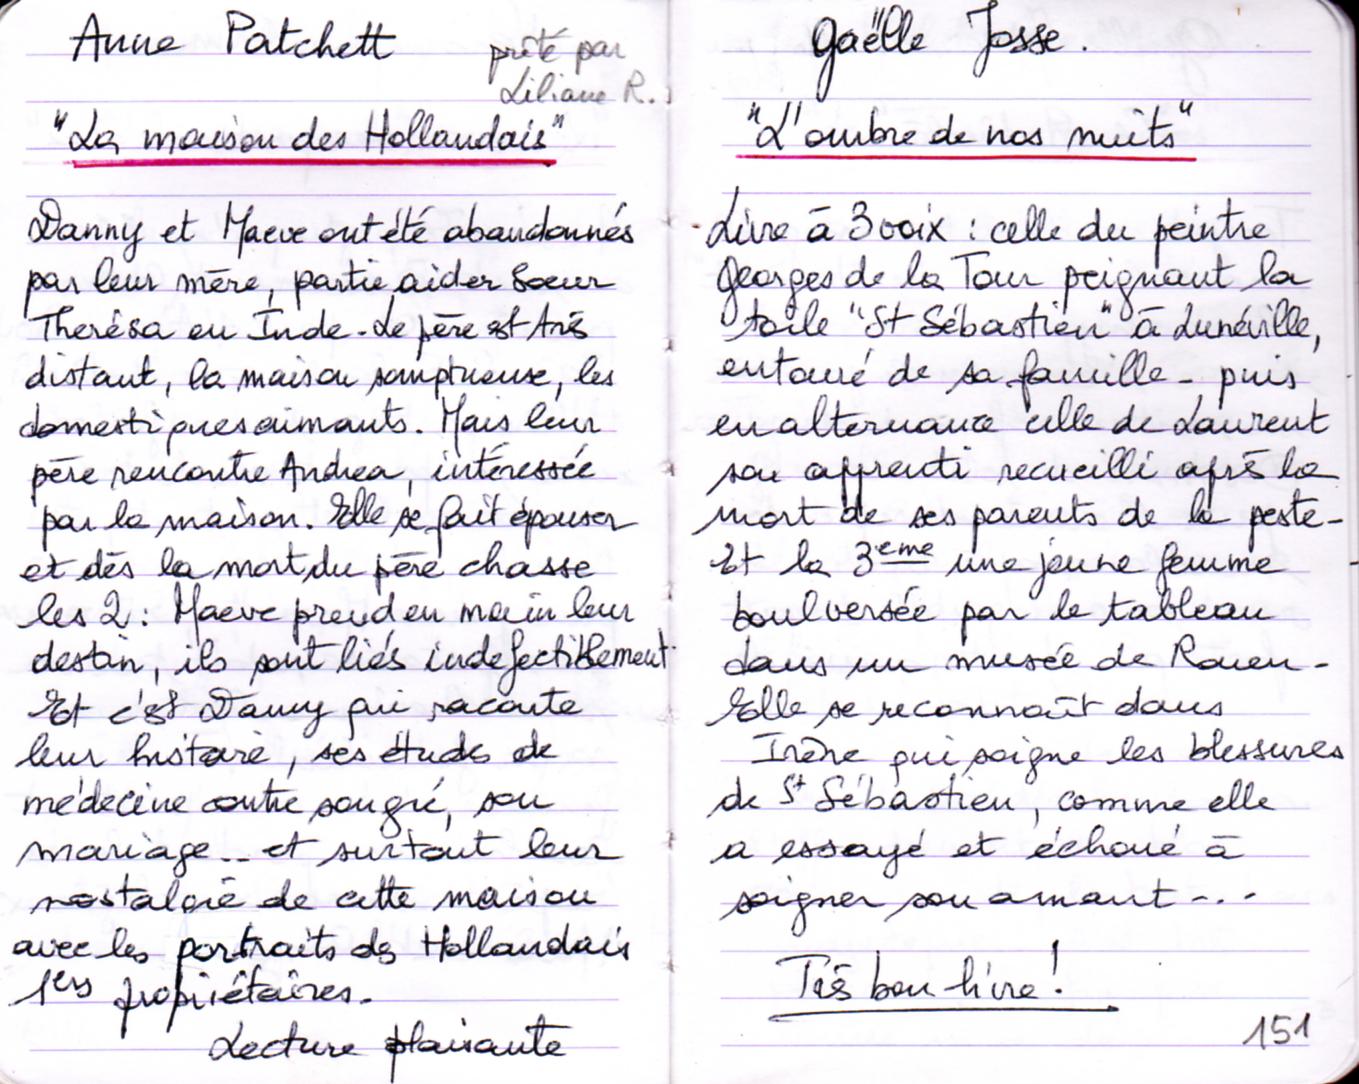 Anne Patchett
prêté par
Liliane R.
"La maison des Hollandais"
Danny et Maeve ont été abandonnés
par leur mère, partie aider Soeur
Therésa en Inde. Le père est très
distant, la maison somptueuse, les
domestiques aimants. Mais leur
père rencontre Andrea, intéressée
par la maison. Elle se fait épouser
et dès la mort du père chasse
les 2 : Maeve prend en main leur
destin, ils sont liés indefectiblement
Et c'est Danny qui raconte
leur histoire, ses études de
médecine contre son gré, son
mariage .. et surtout leur
nostalgie de cette maison
avec les portraits des Hollandais
1ers propriétaires.
Lecture plaisante
Gaëlle Josse.
"L'ombre de nos nuits"
Livre à 3 voix : celle du peintre
Georges de la Tour peignant la
toile "St Sébastien" à Lunéville,
entouré de sa famille - puis
en alternance celle de Laurent
son apprenti recueilli après la
mort de ses parents de la peste -
Et la 3eme une jeune femme
boulversée par le tableau
dans un musée de Rouen -
Elle se reconnaît dans
Irène qui soigne les blessures
de St Sébastien, comme elle
a essayé et échoué à
soigner son amant - . .
Très bon livre !
151